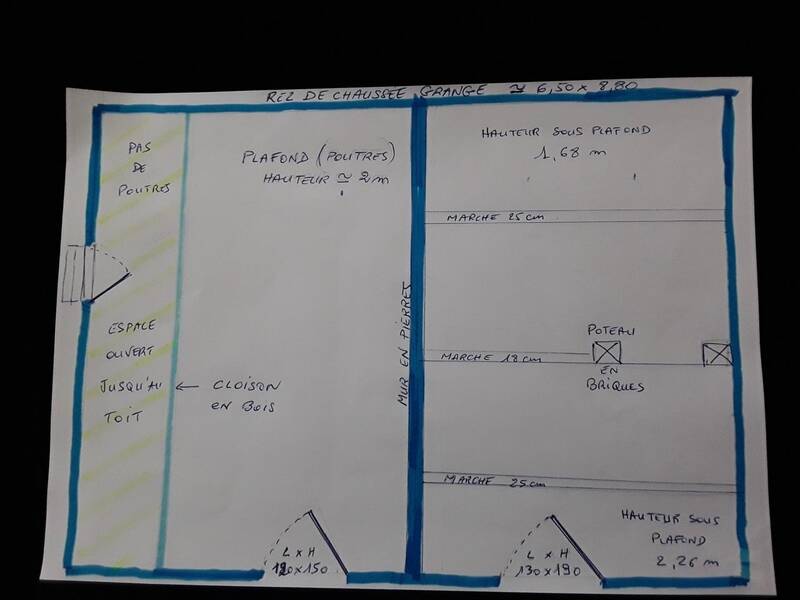 REZ DE CHAUSSEE GRANGE ≃ 6,50 x 8,80
PAS
DE
POUTRES
PLAFOND (POUTRES)
HAUTEUR ≃ 2 m
HAUTEUR SOUS PLAFOND
1,68 m
MARCHE 25 cm
MUR EN PIERRES
ESPACE
OUVERT
JUSQU'AU
TOIT
← CLOISON
EN BOIS
POTEAU
EN
BRIQUES
MARCHE 18 cm
MARCHE 25 cm
HAUTEUR SOUS
PLAFOND
2,26 m
L x H
L x H
130 x 190